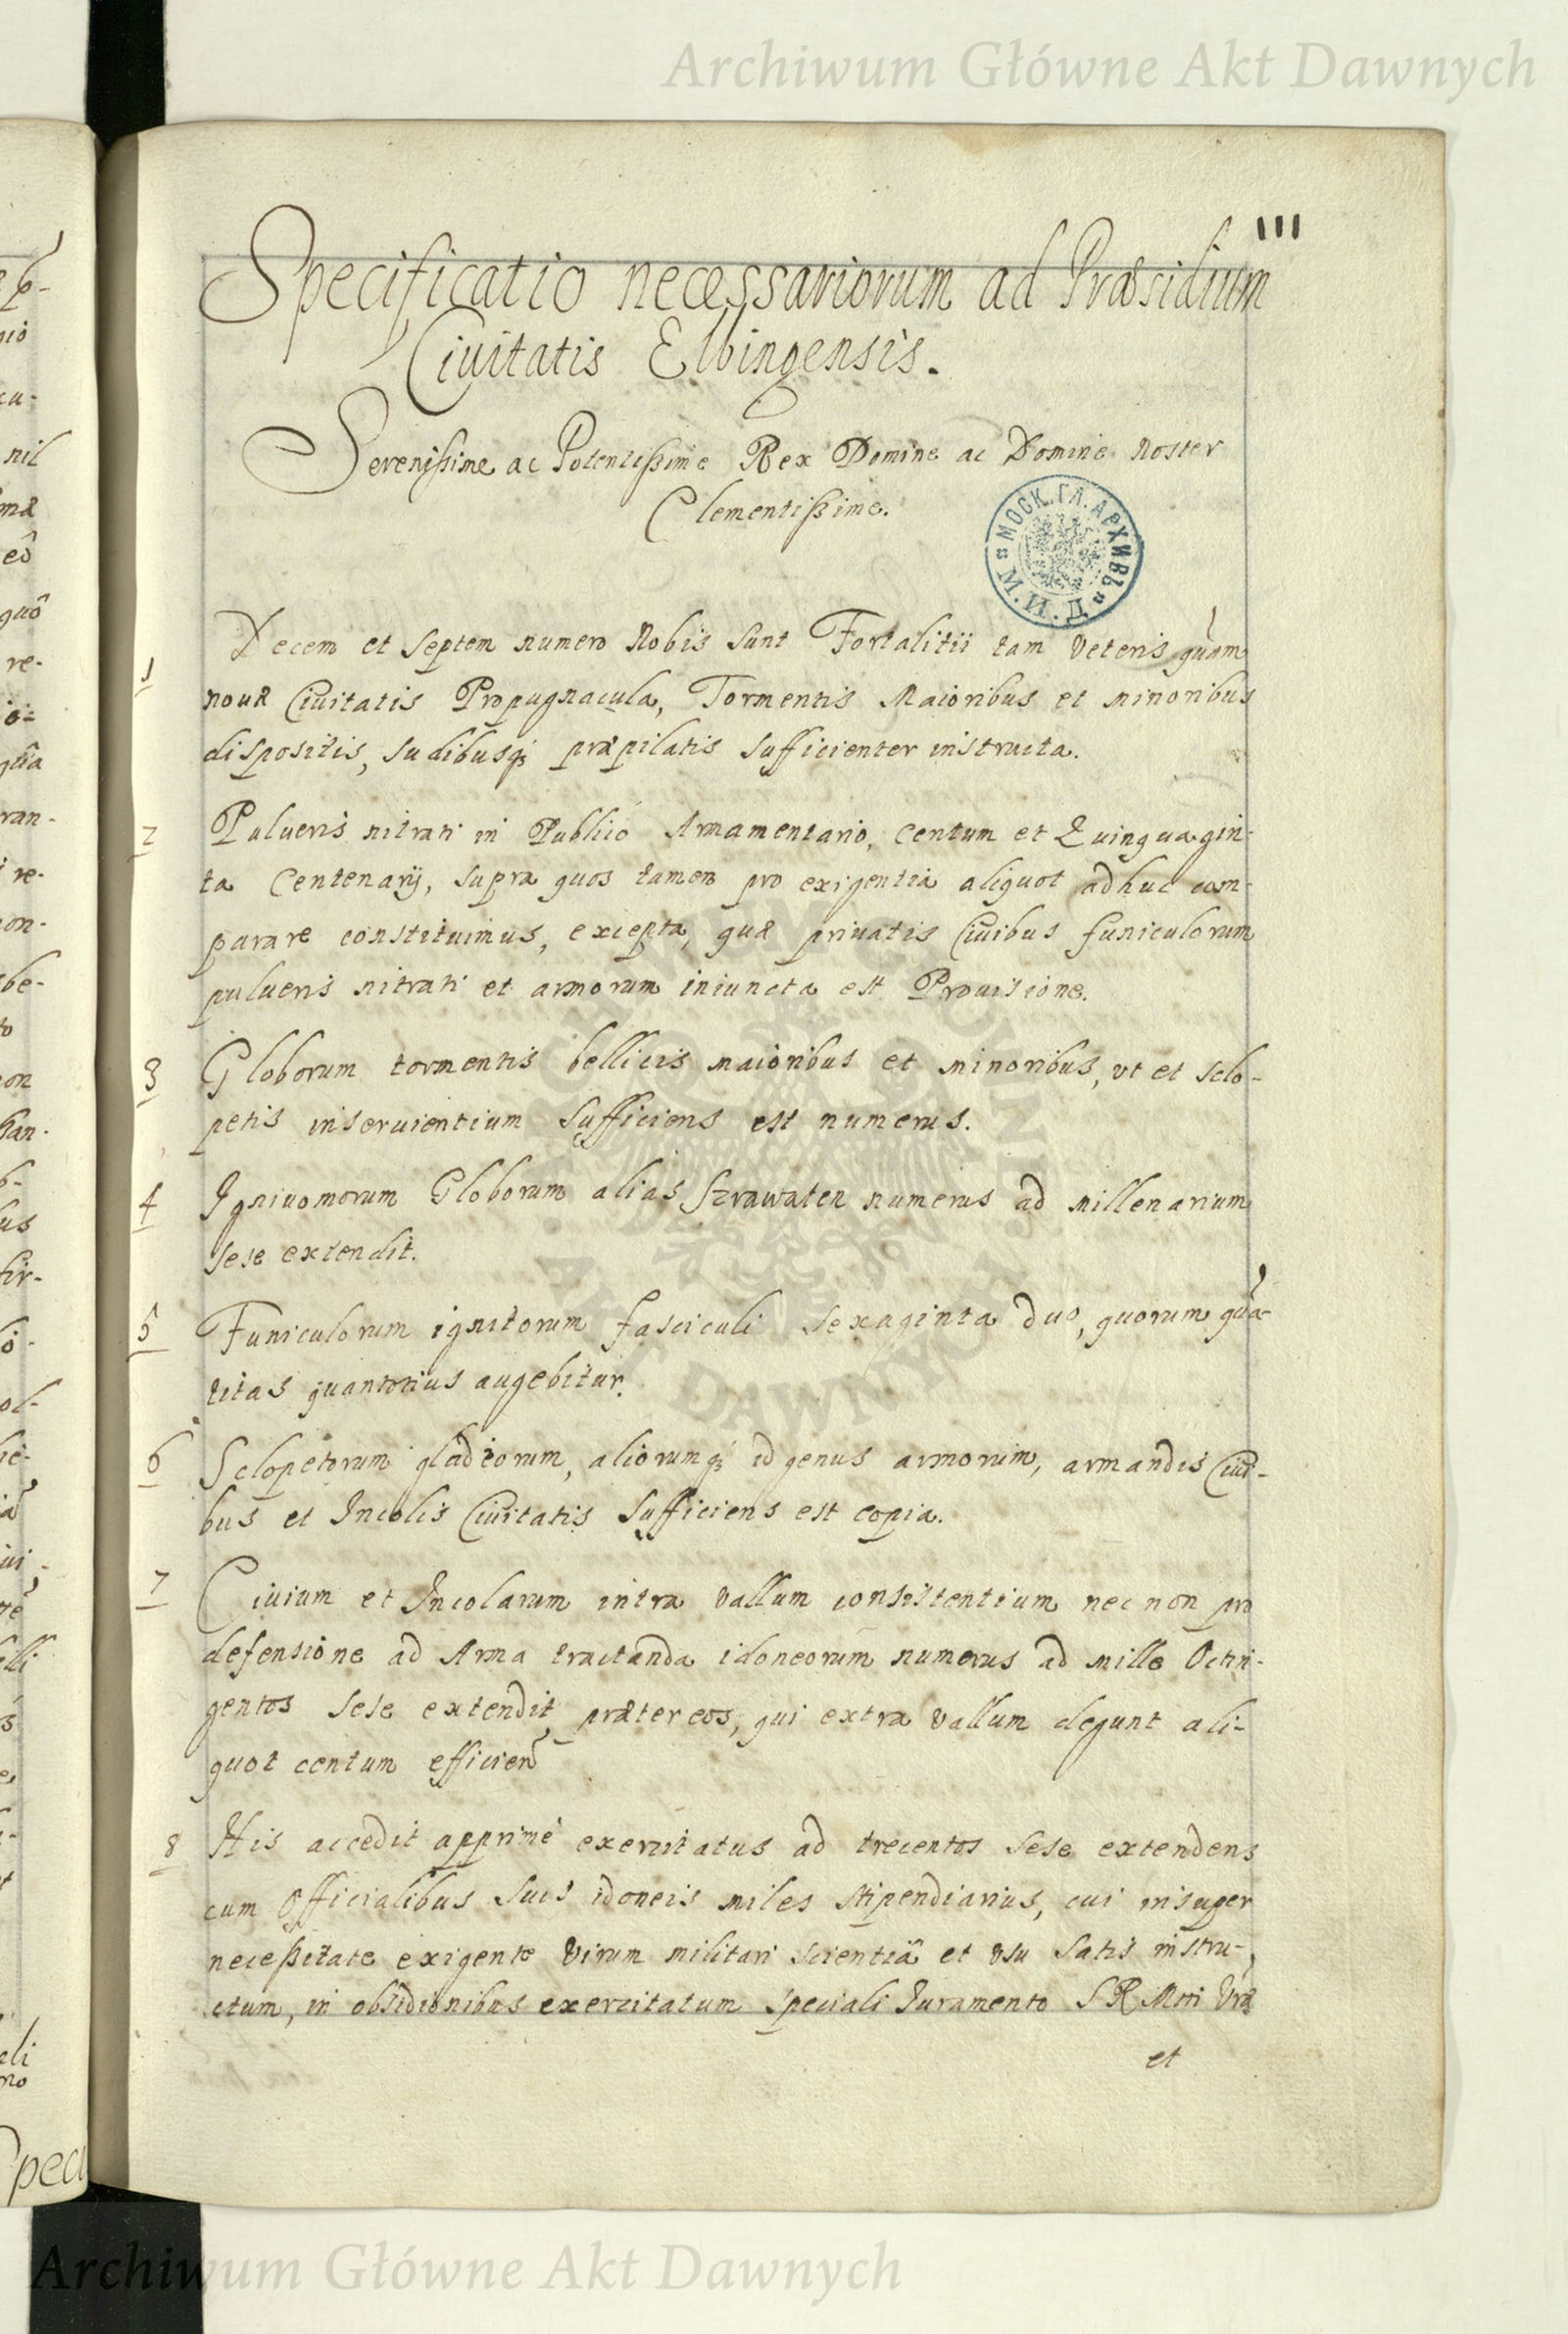 Archiwum Główne Akt Dawnych
111
Specificatio necessariorum ad Præsidium
Ciuitatis Elbingensis.
Serenißime ac Potentißime Rex Domine ac Domine Noster
Clementißime.
МОСК. ГЛ. АРХИВЪ
М. И. Д.
1 Decem et Septem numero Nobis sunt Fortalitii tam Veteris quàm
nouæ Ciuitatis Propugnacula, Tormentis Maioribus et minoribus
dispositis, sudibusq; præpilatis sufficienter instructa.
2 Pulueris nitrati in Publico Armamentario, Centum et Quinquagin-
ta Centenarij, supra quos tamen pro exigentia aliquot adhuc com-
parare constituimus, excepta, quæ priuatis Ciuibus funiculorum
pulueris nitrati et armorum iniuncta est Prouisione.
3 Globorum tormentis bellicis maioribus et minoribus, vt et sclo-
petis inseruientium sufficiens est numerus.
4 Igniuomorum Globorum alias Szrawaten numerus ad millenarium
sese extendit.
5 Funiculorum ignitorum fasciculi sexaginta duo, quorum quã-
titas quantotius augebitur.
6 Sclopetorum gladiorum, aliorumq; id genus armorum, armandis Ciui-
bus et Incolis Ciuitatis sufficiens est copia.
7 Ciuium et Incolarum intra vallum consistentium nec non pro
defensione ad Arma tractanda idoneorum numerus ad mille Octin-
gentos sese extendit, præter eos, qui extra vallum degunt ali-
quot centum efficien̄
8 His accedit apprimè exercitatus ad trecentos sese extendens
cum Officialibus suis idoneis miles stipendiarius, cui insuper
neceßitate exigente Virum militari scientiâ et vsu satis instru-
ctum, in obsidionibus exercitatum speciali Iuramento S R Mtti Vræ
et
Archiwum Główne Akt Dawnych